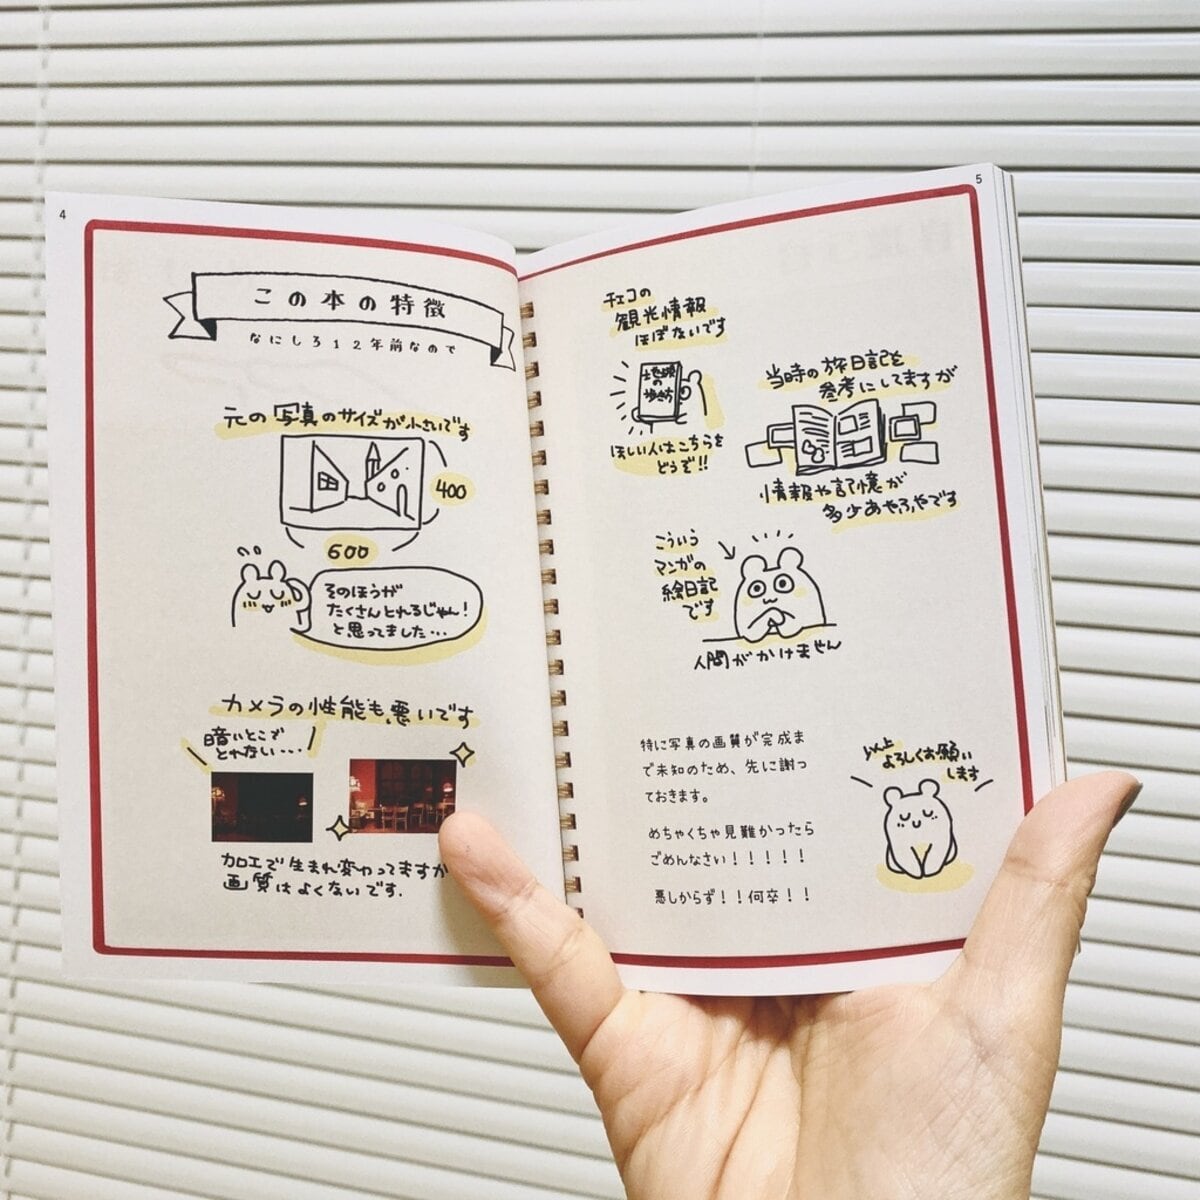 4
この本の特徴
なにしろ12年前なので
元の写真のサイズが小さいです
400
600
そのほうが
たくさんとれるじゃん!
と思ってました…
カメラの性能も悪いです
暗いとこで
とれない…
加工で生まれ変わってますが
画質はよくないです.
5
チェコの
観光情報
ほぼないです
地球
の
歩き方
ほしい人はこちらを
どうぞ!!
当時の旅日記を
参考にしてますが
情報や記憶が
多少あやふやです
こういう
マンガの
絵日記
です
人間がかけません
特に写真の画質が完成ま
で未知のため、先に謝っ
ておきます。
めちゃくちゃ見難かったら
ごめんなさい!!!!!
悪しからず!!何卒!!
以上
よろしくお願い
します